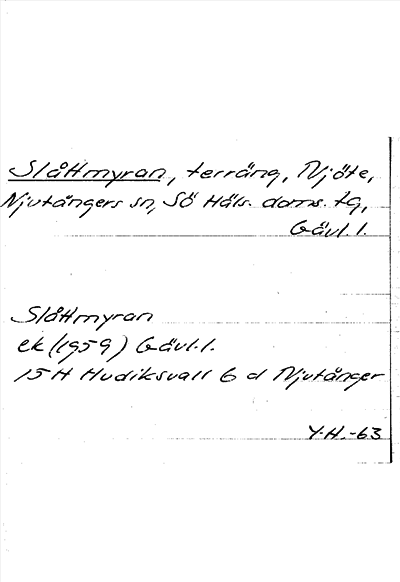 Slåttmyran, terräng, Njöte,
Njutångers sn, Sö Häls. doms. tg,
Gävl. l.
Slåttmyran
ek (1959) Gävl. l.
15H Hudiksvall 6 d Njutånger
Y.H.-63